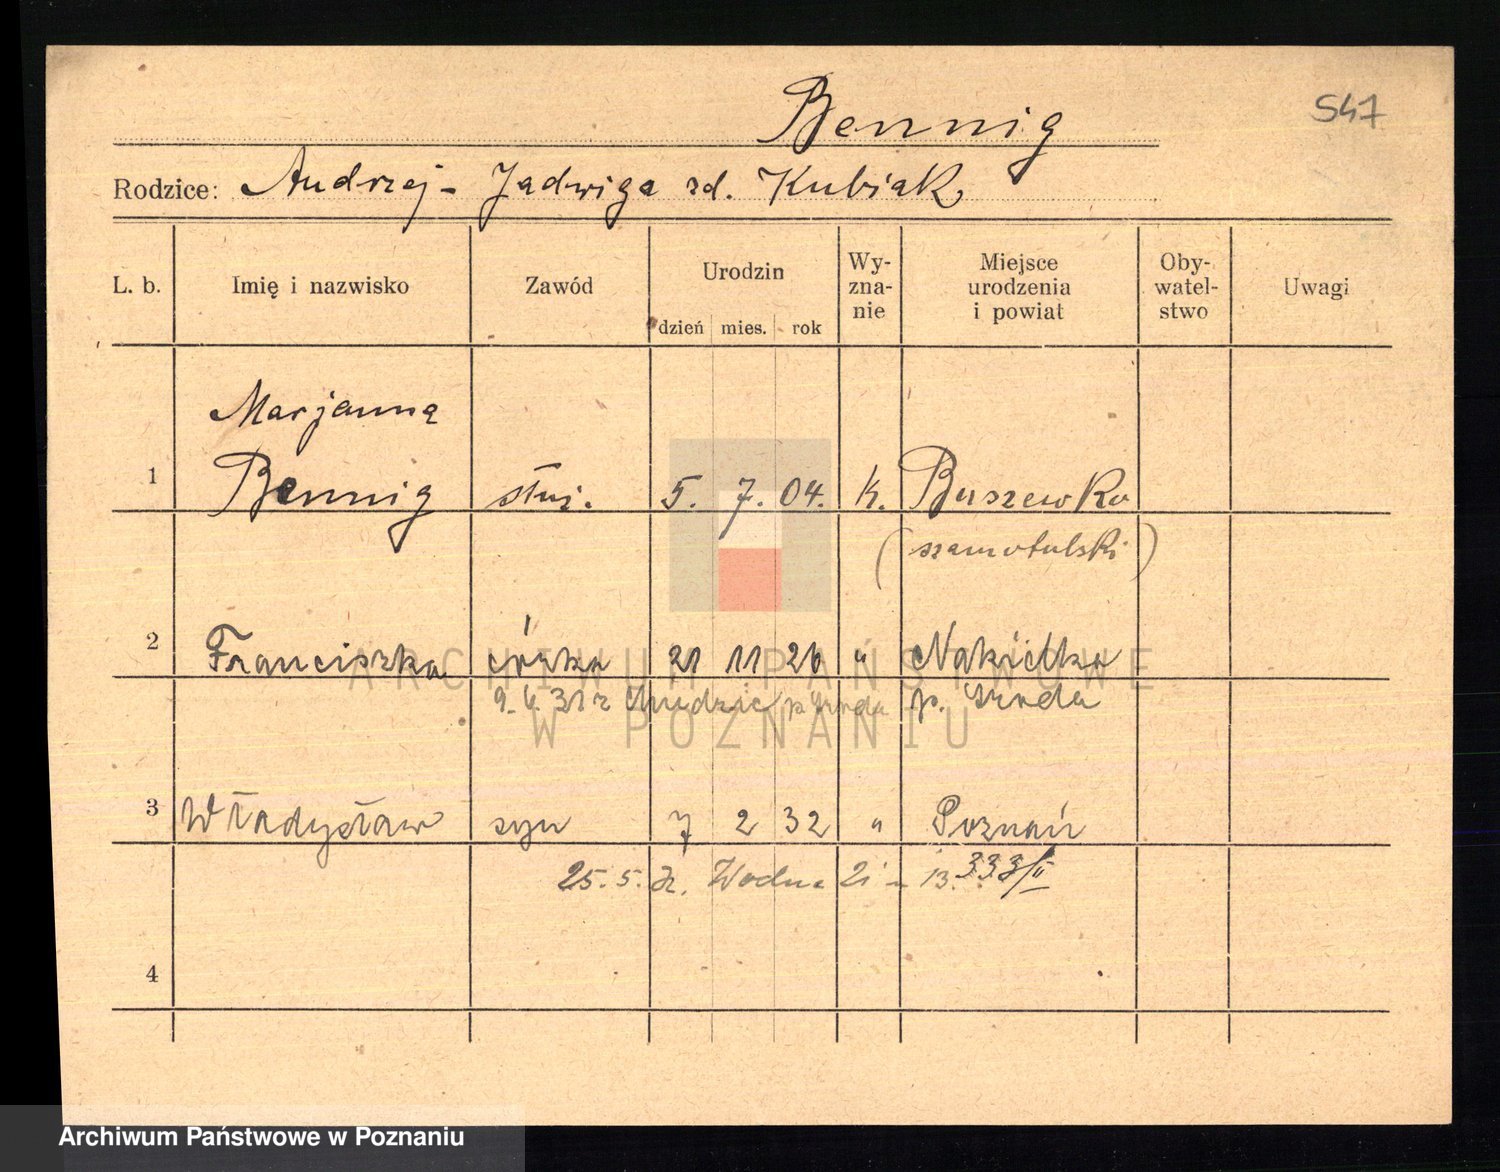 Bennig
547
Rodzice: Andrzej - Jadwiga zd. Kubiak
L. b. Imię i nazwisko Zawód Urodzin dzień mies. rok Wy-zna-nie Miejsce urodzenia i powiat Oby-watel-stwo Uwagi
Marjanna
1 Bennig służ. 5. 7. 04. k. Buszewko
(szamotulski)
2 Franciszka córka 21 11 26 " 
9. 4. 31 r p. Środa p. Środa
3 Władysław syn 7 2 32 " Poznań
25. 5. Wodna 333/II
4
ARCHIWUM PAŃSTWOWE
W POZNANIU
Archiwum Państwowe w Poznaniu